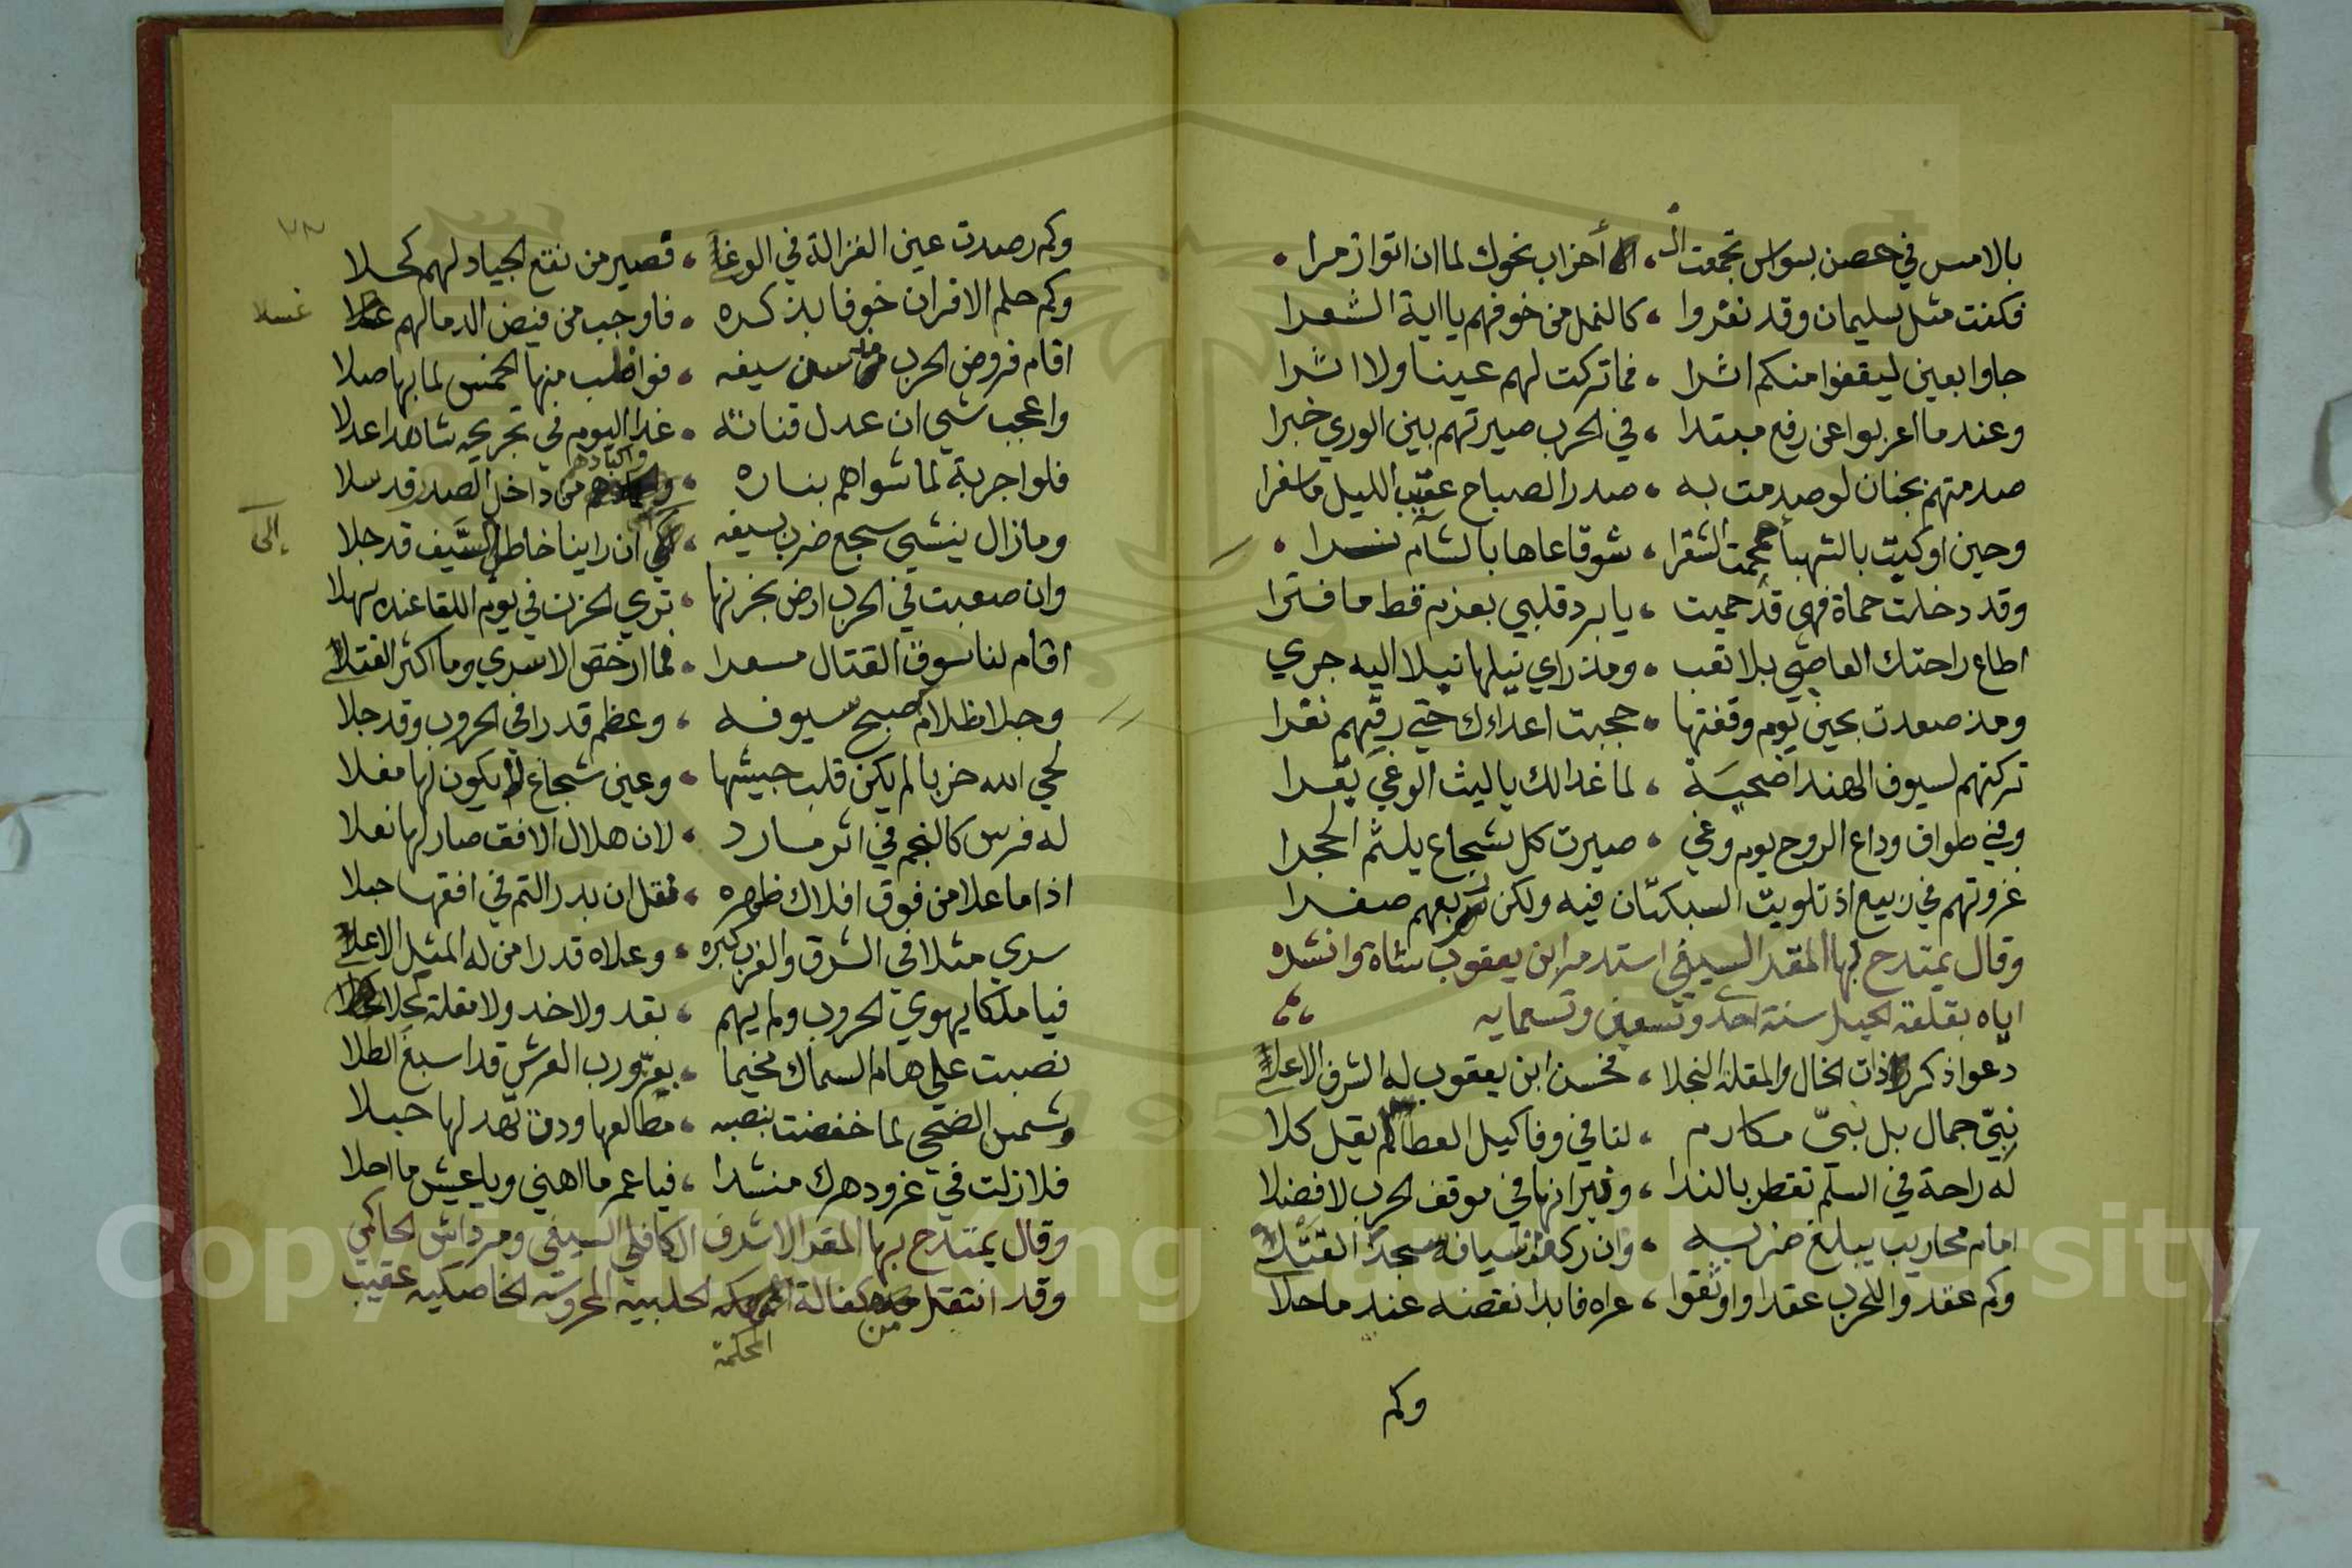 بالامس في حصن بسواس تجمعت الـ ، أحزاب نحوك لما ان اتوا زمرا
فكنت مثل سليمان وقد نفروا ، كالنمل من خوفهم يا اية الشعرا
جاوا بعين ليقفوا منكم اثرا ، فما تركت لهم عينا ولا اثرا
وعند ما اعربوا عن رفع مبتدا ، في الحرب صيرتهم بين الوري خبرا
صدمتهم بجنان لو صدمت به ، صدر الصباح عقيب الليل ما سفرا
وحين اوكيت بالشهبا حمحمت الشقرا ، شوقا عاها بالشآم
وقد دخلت حماة فهي قد حميت ، يا برد قلبي بعزم قط ما فترا
اطاع راحتك العاصي بلا تعب ، ومذ راي نيلها نيلا اليه جري
ومذ صعدت بحين يوم وقفتها ، حجبت اعداءك حتي رقيهم نفرا
تركتهم لسيوف الهند اضحية ، لما غدا لك يا ليث الوغي بقرا
وفي طواف وداع الروح يوم وغي ، صيرت كل شجاع يلثم الحجرا
غزوتهم في ربيع اذ تلويت السبكتان فيه ولكن ربعهم صفرا
وقال يمتدح بها المقر السيفي استدمر ابن يعقوب شاة وانشده
اياه بقلعة الجبل سنة احدي وتسعين وتسمايه
دعوا ذكر ذات الخال والمقلة النجلا ، فحسن ابن يعقوب له الشرف الاعلا
نبيّ جمال بل نبيّ مكارم ، لنا في وفا كيل العطا لم يقل كلا
له راحة في السلم تقطر بالندا ، ونيرانها في موقف الحرب لا فضلا
امام محاريب يبلغ ضربه ، وان ركعت اسيافه سجد القتلا
وكم عقدوا للحرب عقدا واوثقوا ، عراه فابدا نقضه عند ما حلا
وكم
٧٣
وكم رصدت عين الغزالة في الوغا ، فصير من نقع الجياد لهم كحلا
وكم حلم الاقران خوفا بذكره ، فاوجب من فيض الدما لهم غسلا
غسلا
اقام فروض الحرب من سن سيفه ، فواظب منها الخمس لما بها صلا
واعجب شي ان عدل قناته ، غدا اليوم في تجريحه شاهدا عدلا
فلوا جربة لما شواهم بناره ، واكبادهم من داخل الصدر قد سلا
ومازال ينشي سجع ضرب بسيفه ، الى ان راينا خاطر السَّيف قد جلا
إلى
وان صعبت في الحرب ارض بخزنها ، تري الحزن في يوم اللقا عنده سهلا
اقام لنا سوق القتال مسعرا ، فما ارخص الاسري وما اكثر القتلا
وجلا ظلام صبح سيوفه ، وعظم قدرا في الحروب وقد جلا
لحي الله حزبا لم يكن قلب جيشها ، وعين شجاع لا يكون لها مقلا
له فرس كالنجم في اثر مارد ، لان هلال الافق صار لها نعلا
اذا ما علا من فوق افلاك ظهره ، فقل ان بدر التم في افقها جلا
سري مثلا في الشرق والغرب كبره ، وعلاه قدرا من له المثل الاعلا
فيا ملكا يهوي الحروب ولم يهم ، بقد ولا خد ولا مقلة كحلا
نصبت علي هام السماك مخيما ، بعزّ ورب العرش قد اسبغ الظلا
وشمس الضحي لما خفضت بنصبه ، مطالعها ودت تمد لها حبلا
فلا زلت في غزو دهرك منشدا ، فيا عمر ما اهني ويا عيش ما احلا
وقال يمتدح بها المقر الاشرف الكافلي السيفي ومرداش الحاكمي
وقد انتقل من كفالة المملكة الحلبيه المحروسه الخاصكيه عقيب